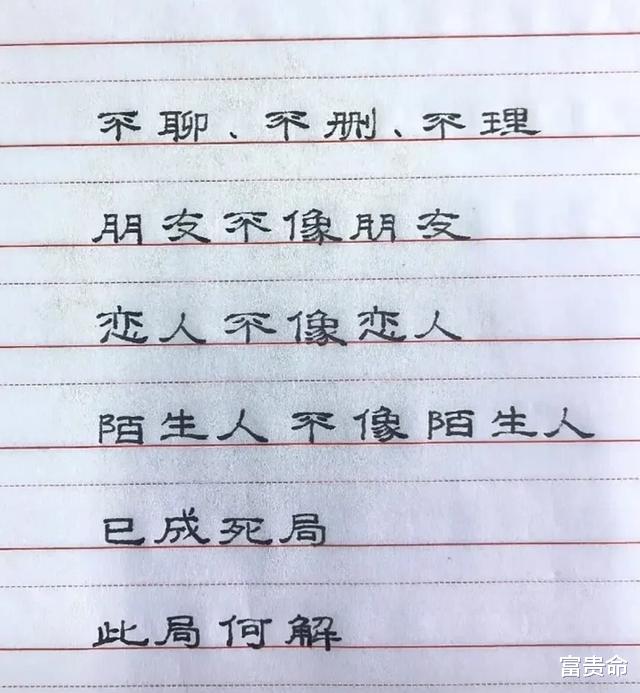 不聊、不删、不理
朋友不像朋友
恋人不像恋人
陌生人不像陌生人
已成死局
此局何解
富贵命